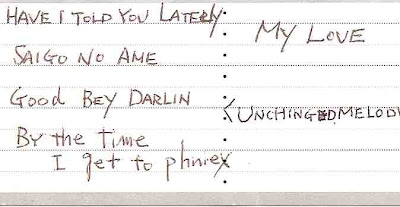 HAVE I TOLD YOU LATERLY
SAIGO NO AME
GOOD BEY DARLIN
BY the TIME
I get to phniex
MY LOVE
UNCHINGED MELODY